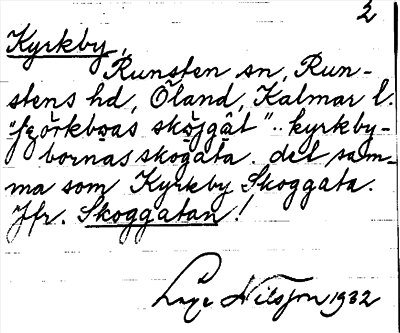 2
Kyrkby,
Runsten sn, Run-
stens hd, Öland, Kalmar l.
skǫjgåt" .. kyrkby-
bornas skogata. det sam-
ma som Kyrkby Skoggata.
Jfr. Skoggatan!
Åke Nilsson 1932